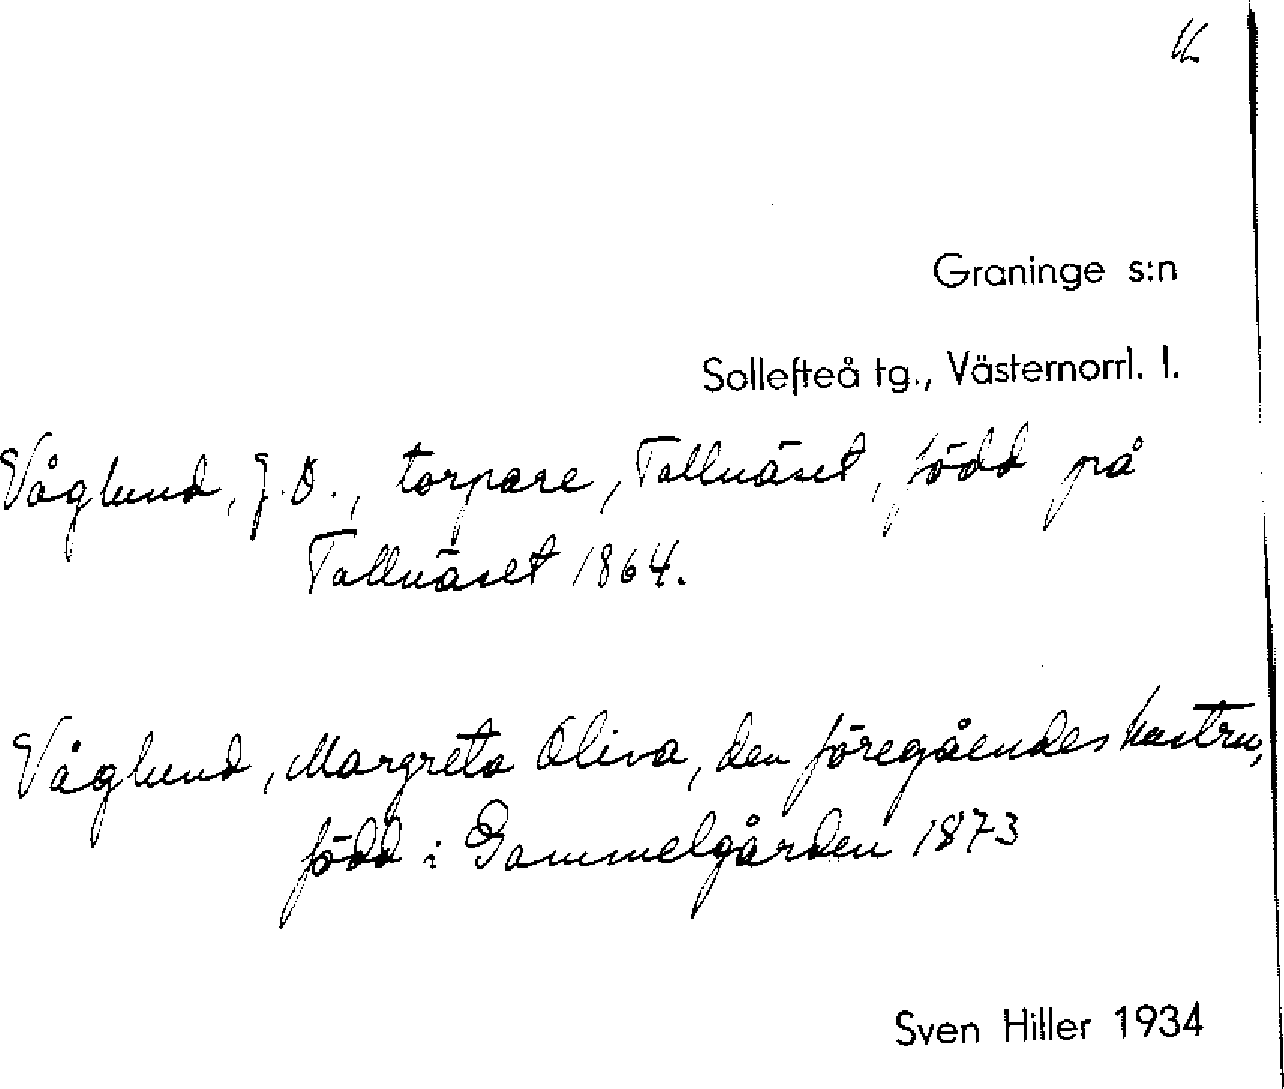 Graninge s:n
Sollefteå tg., Västernorrl. l.
Våglund, J. O., torpare, Tallnäset, född på
Tallnäset 1864.
Våglund, Margreta Oliva, den föregåendes hustru,
född i Gammelgården 1873
Sven Hiller 1934